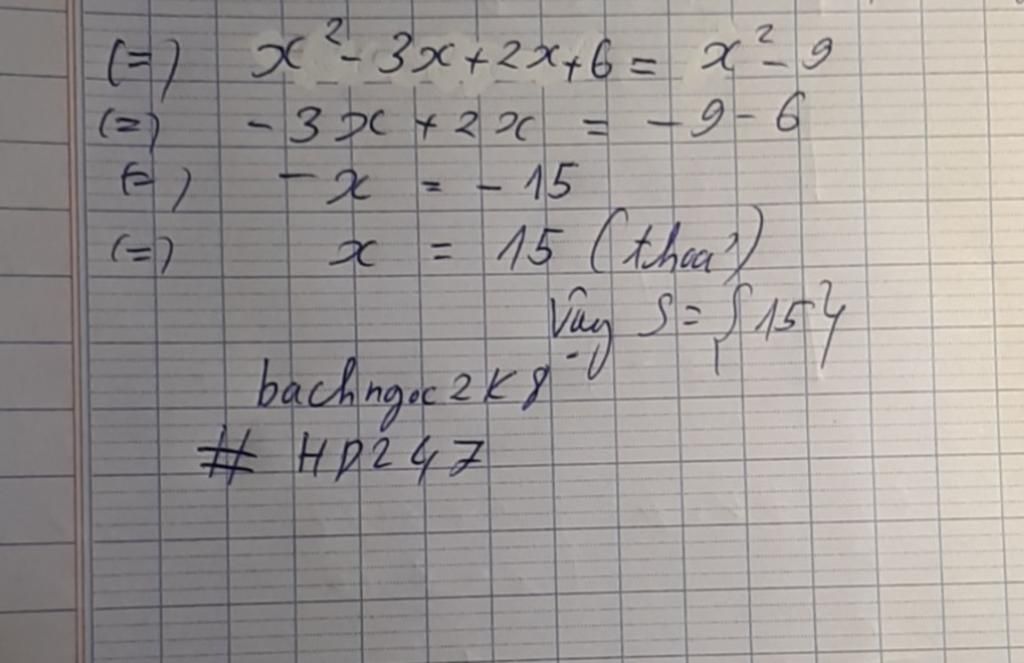 (=) x² - 3x + 2x + 6 = x² - 9
(=) - 3x + 2x = - 9 - 6
(=) - x = - 15
(=) x = 15 (thoả)
Vậy S = {15}
bachngoc2k8
# HD247